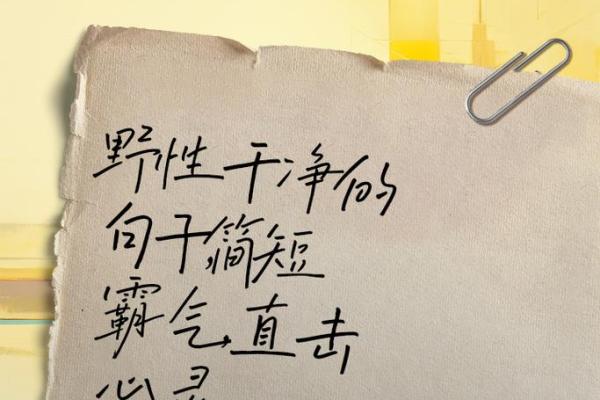 野性干净的
句子简短
霸气,直击
心灵